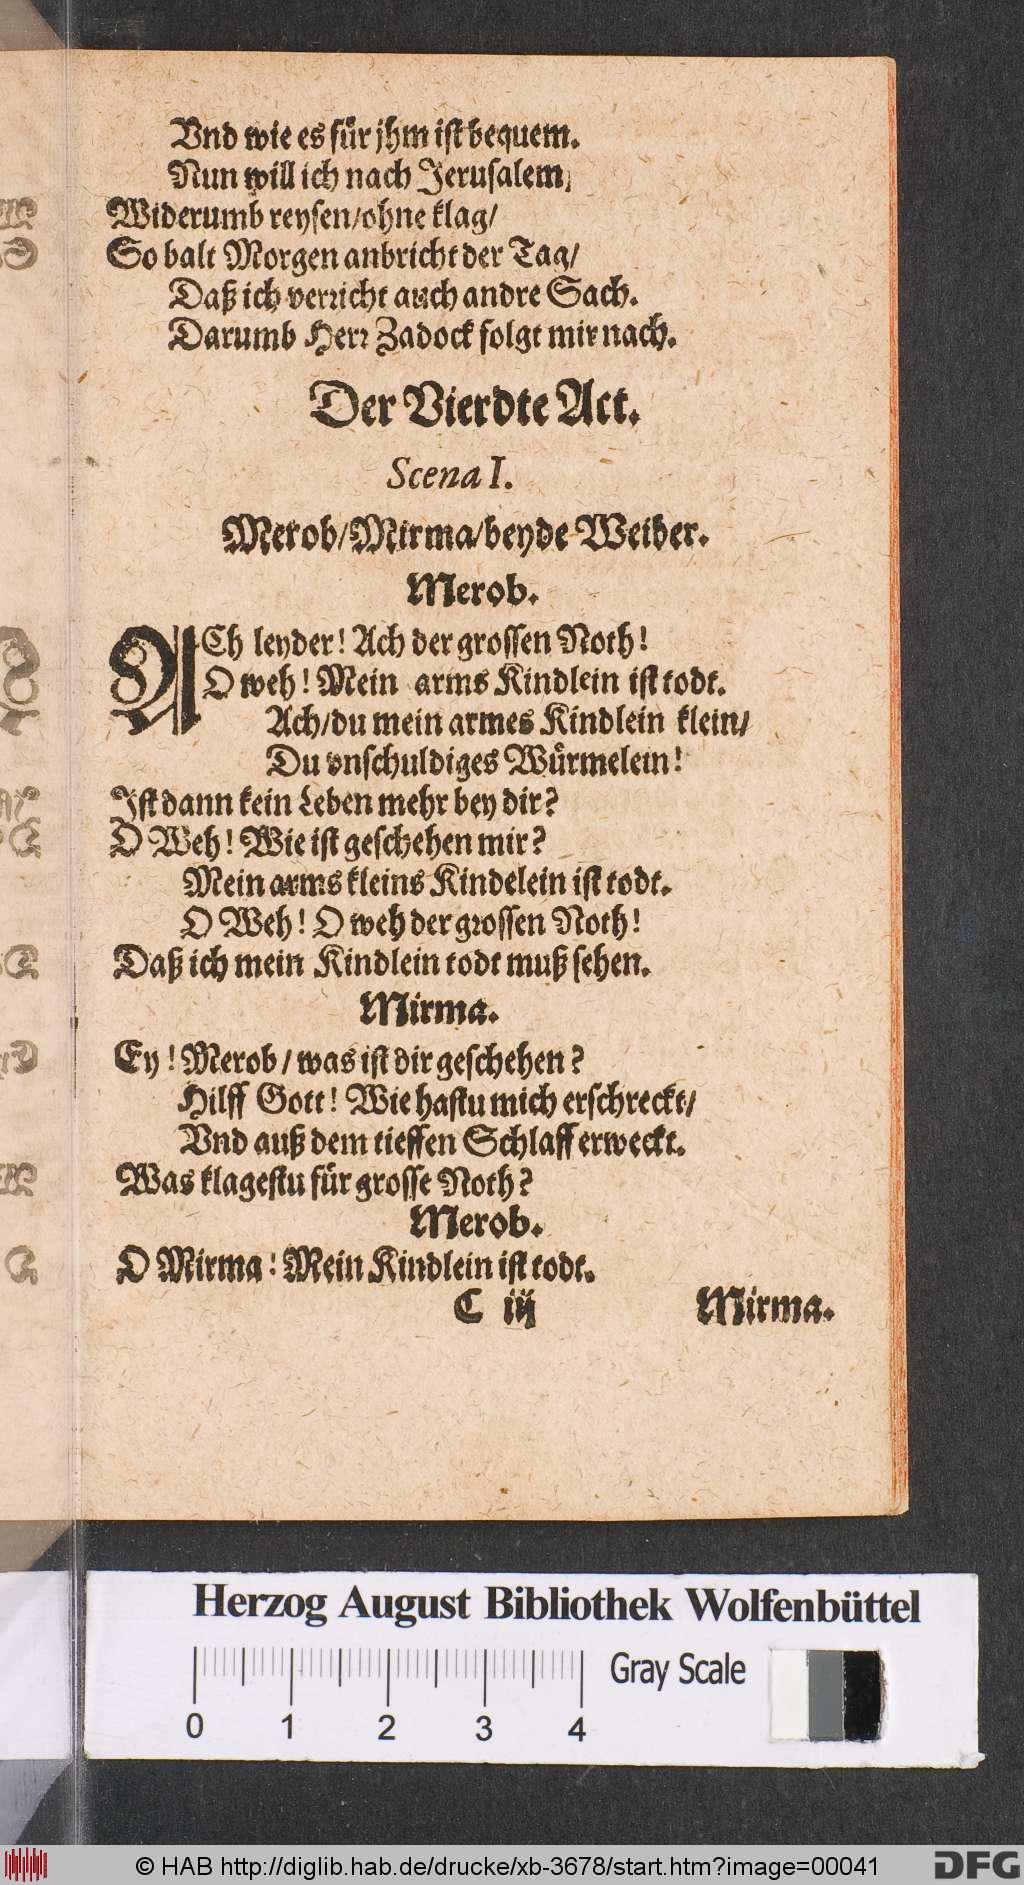 Vnd wie es für jhm ist bequem.
Nun will ich nach Jerusalem/
Widerumb reysen/ohne klag/
So balt Morgen anbricht der Tag/
Daß ich verricht auch andre Sach.
Darumb Herr Zadock folgt mir nach.
Der Vierdte Act.
Scena I.
Merob/Mirma/beyde Weiber.
Merob.
ACh leyder! Ach der grossen Noth!
O weh! Mein arms Kindlein ist todt.
Ach/du mein armes Kindlein klein/
Du vnschuldiges Würmelein!
Ist dann kein Leben mehr bey dir?
O Weh! Wie ist geschehen mir?
Mein arms kleins Kindelein ist todt.
O Weh! O weh der grossen Noth!
Daß ich mein Kindlein todt muß sehen.
Mirma.
Ey! Merob/was ist dir geschehen?
Hilff Gott! Wie hastu mich erschreckt/
Vnd auß dem tieffen Schlaff erweckt.
Was klagestu für grosse Noth?
Merob.
O Mirma! Mein Kindlein ist todt.
C iij Mirma.
Herzog August Bibliothek Wolfenbüttel
Gray Scale
0 1 2 3 4
© HAB http://diglib.hab.de/drucke/xb-3678/start.htm?image=00041
DFG